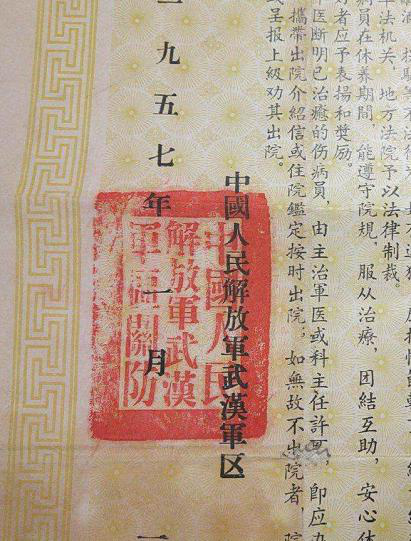 法机关，地方法院予以法律制裁。
病員在休养期間，能遵守院規，服从治療、团結互助，安心休
好者应予表揚和獎励。
医断明已治癒的伤病員，由主治軍医或科主任許可，即应办
携帶出院介紹信或住院鑑定按时出院，如無故不出院者，院
呈报上級劝其出院。
中國人民解放軍武漢軍区
中國人民
解放軍武漢
軍區國防
一九五七年一月